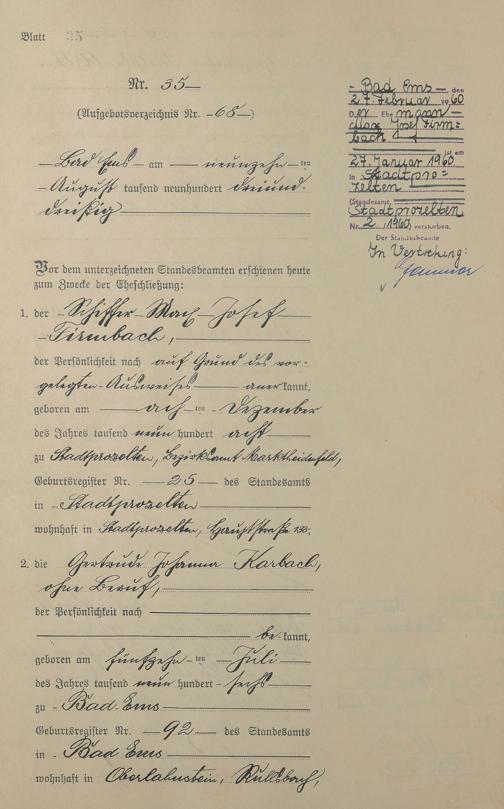 Blatt 35
Nr. 35
(Aufgebotsverzeichnis Nr. 68)
Bad Ems am neunzehn ten
August tausend neunhundert dreiund-
dreißig
Vor dem unterzeichneten Standesbeamten erschienen heute
zum Zwecke der Eheschließung:
1. der Schiffer Max Josef
Firmbach,
der Persönlichkeit nach auf Grund des vor-
gelegten Ausweises anerkannt,
geboren am ach ten Dezember
des Jahres tausend neun hundert acht
zu Stadtprozelten, Bezirksamt Marktheidenfeld,
Geburtsregister Nr. 25 des Standesamts
in Stadtprozelten
wohnhaft in Stadtprozelten, Hauptstraße 153;
2. die Gertrude Johanna Karbach,
ohne Beruf,
der Persönlichkeit nach
bekannt,
geboren am fünfzehn ten Juli
des Jahres tausend neun hundert sechs
zu Bad Ems
Geburtsregister Nr. 92 des Standesamts
in Bad Ems
wohnhaft in Oberlahnstein,
Bad Ems, den
27. Februar 1960
Der Ehemann
Max Josef Firm=
bach
ist am
27. Januar 1960
in Stadtpro=
zelten
(Standesamt
Stadtprozelten
Nr. 2/1960) verstorben.
Der Standesbeamte
In Vertretung: